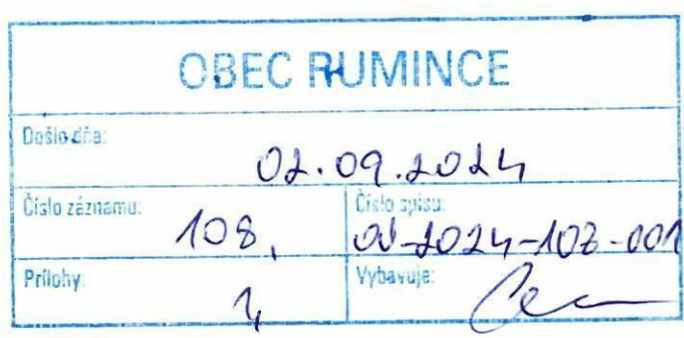 OBEC RUMINCE
Došlo dňa:
02.09.2024
Číslo záznamu:
108,
Číslo spisu:
OU-2024-108-001
Prílohy:
Vybavuje: